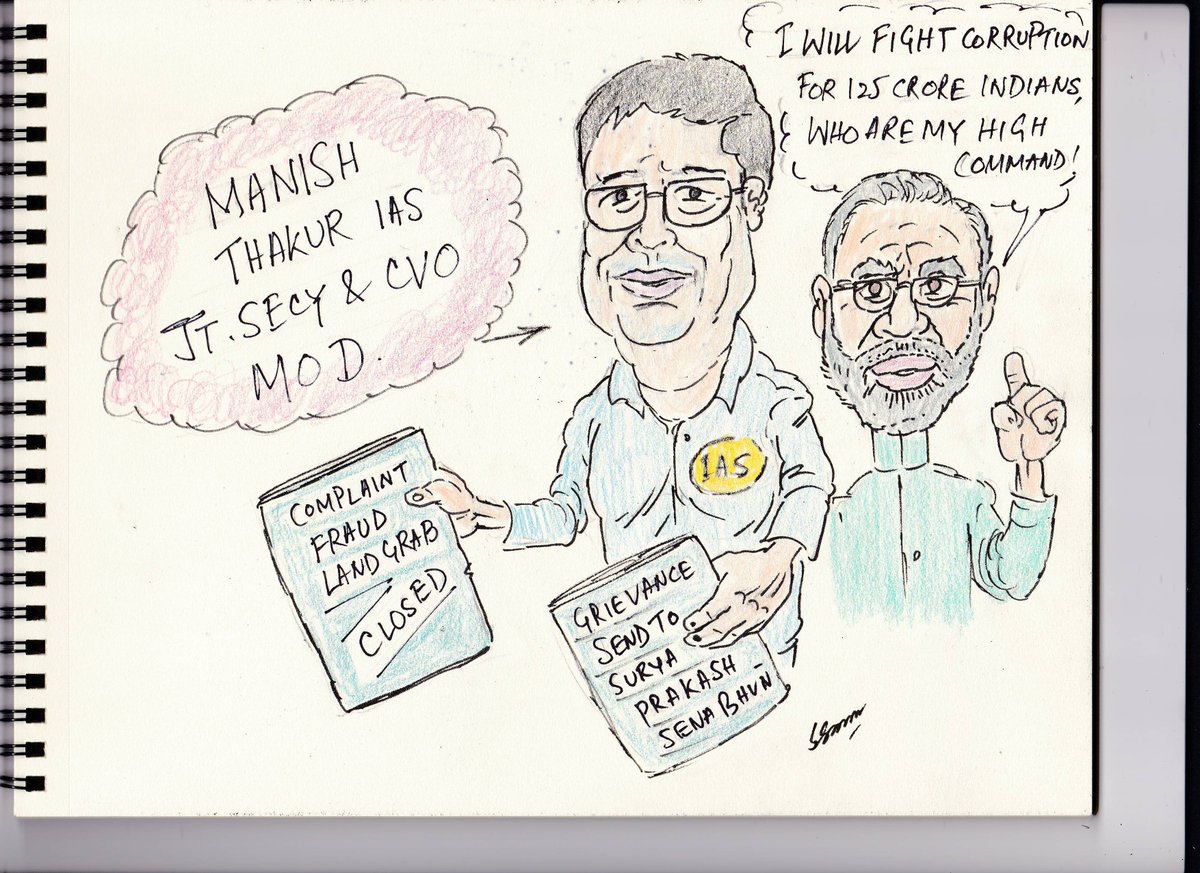 I WILL FIGHT CORRUPTION
FOR 125 CRORE INDIANS,
WHO ARE MY HIGH
COMMAND!
MANISH
THAKUR IAS
JT. SECY & CVO
MOD.
IAS
COMPLAINT
FRAUD
LAND GRAB
CLOSED
GRIEVANCE
SEND TO
SURYA
PRAKASH
SENA BHVN